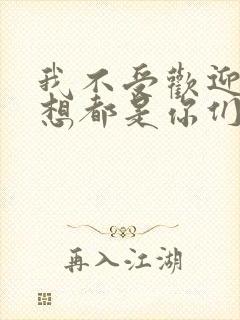 我不受歡迎
想都是你们
再入江湖